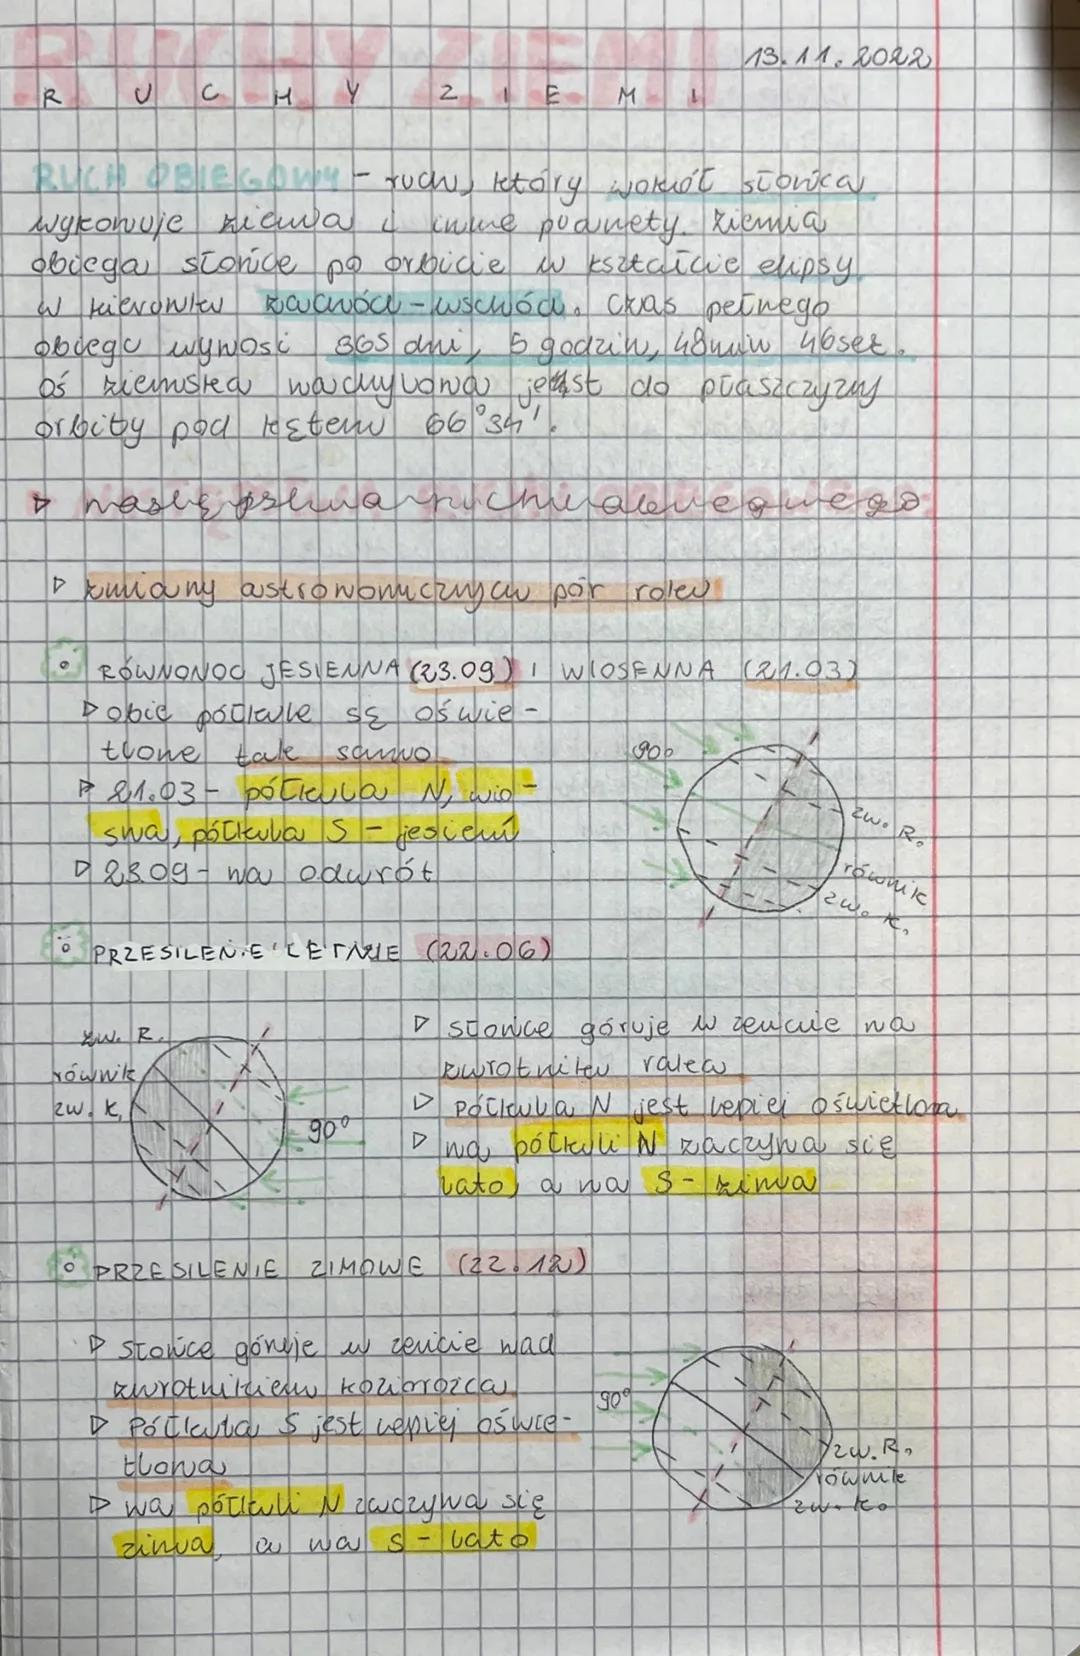 RUCHY ZIEMI
13.11.2022
R U C H Y Z I E M I
RUCH OBIEGOWY - ruch, który wokół słońca
wykonuje ziemia i inne planety. Ziemia
obiega słońce po orbicie w kształcie elipsy
w kierunku zachód-wschód. Czas pełnego
obiegu wynosi 365 dni, 5 godzin, 48min 46sek.
oś ziemska nachylona jest do płaszczyzny
orbity pod kątem 66°34'.
▷ następstwa ruchu obiegowego
▷ zmiany astronomicznych pór roku
RÓWNONOC JESIENNA (23.09) I WIOSENNA (21.03)
▷ obie półkule są oświe-
tlone tak samo
▷ 21.03 - półkula N, wio-
sna, półkula S - jesień
▷ 23.09 - na odwrót
90°
zw. R.
równik
zw. K.
PRZESILENIE LETNIE (22.06)
zw. R.
równik
zw. K.
90°
▷ słońce góruje w zenicie na
zwrotniku raka
▷ półkula N jest lepiej oświetlona
▷ na półkuli N zaczyna się
lato, a na S - zima
PRZESILENIE ZIMOWE (22.12)
▷ słońce góruje w zenicie nad
zwrotnikiem koziorożca
▷ Półkula S jest lepiej oświe-
tlona
▷ na półkuli N zaczyna się
zima, a na S - lato
90°
zw. R.
równik
zw. K.